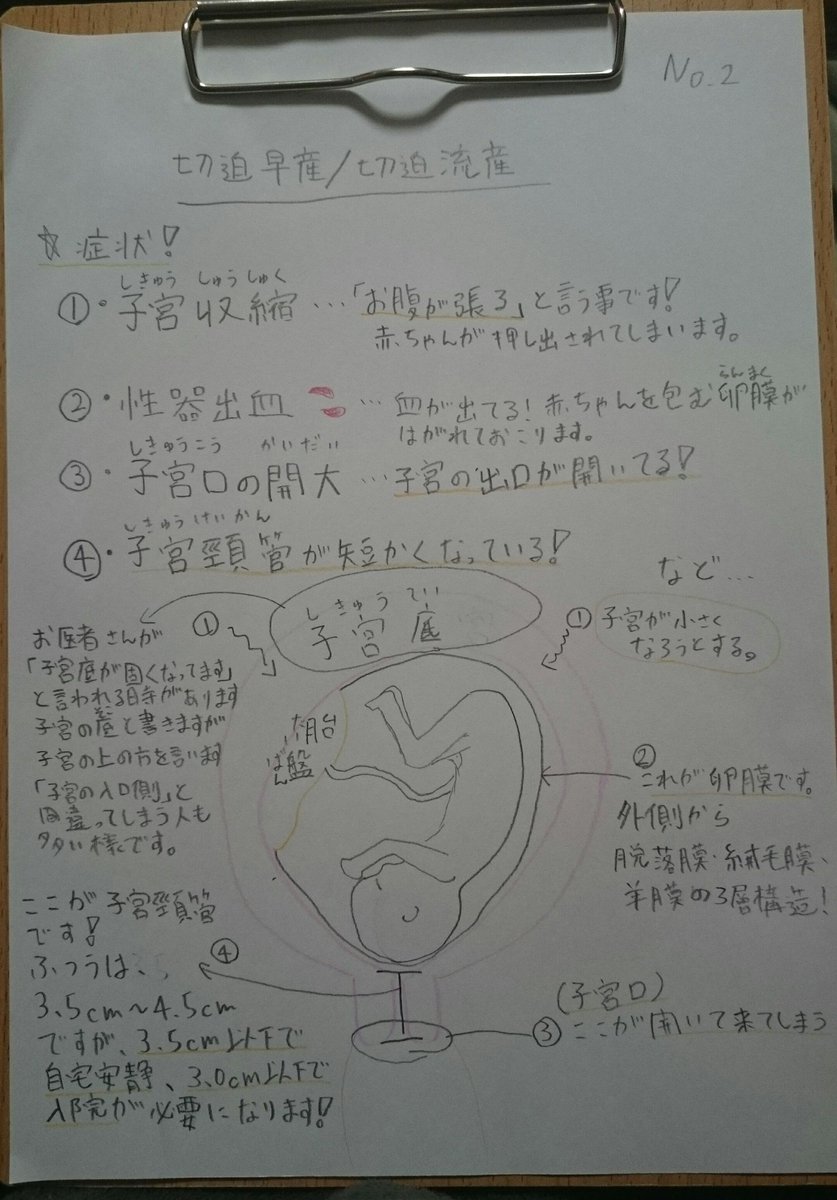 No.2
切迫早産/切迫流産
☆症状!
しきゅう しゅうしゅく
①・子宮収縮…「お腹が張る」と言う事です!
赤ちゃんが押し出されてしまいます。
らんまく
②・性器出血 …血が出てる!赤ちゃんを包む卵膜が
はがれておこります。
しきゅうこう かいだい
③・子宮口の開大…子宮の出口が開いてる!
しきゅうけいかん
④・子宮頸管が短かくなっている!
など…
しきゅうてい
子宮底
①
①子宮が小さく
なろうとする。
お医者さんが
「子宮底が固くなってます」
と言われる時があります
そこ
子宮の底と書きますが
子宮の上の方を言います
「子宮の入口側」と
間違ってしまう人も
多い様です。
たいばん
胎盤
②これが卵膜です。
外側から
脱落膜・絨毛膜、
羊膜の3層構造!
ここが子宮頸管
です!
④
ふつうは、
3.5cm～4.5cm
ですが、3.5cm以下で
自宅安静、3.0cm以下で
入院が必要になります!
(子宮口)
③ここが開いて来てしまう